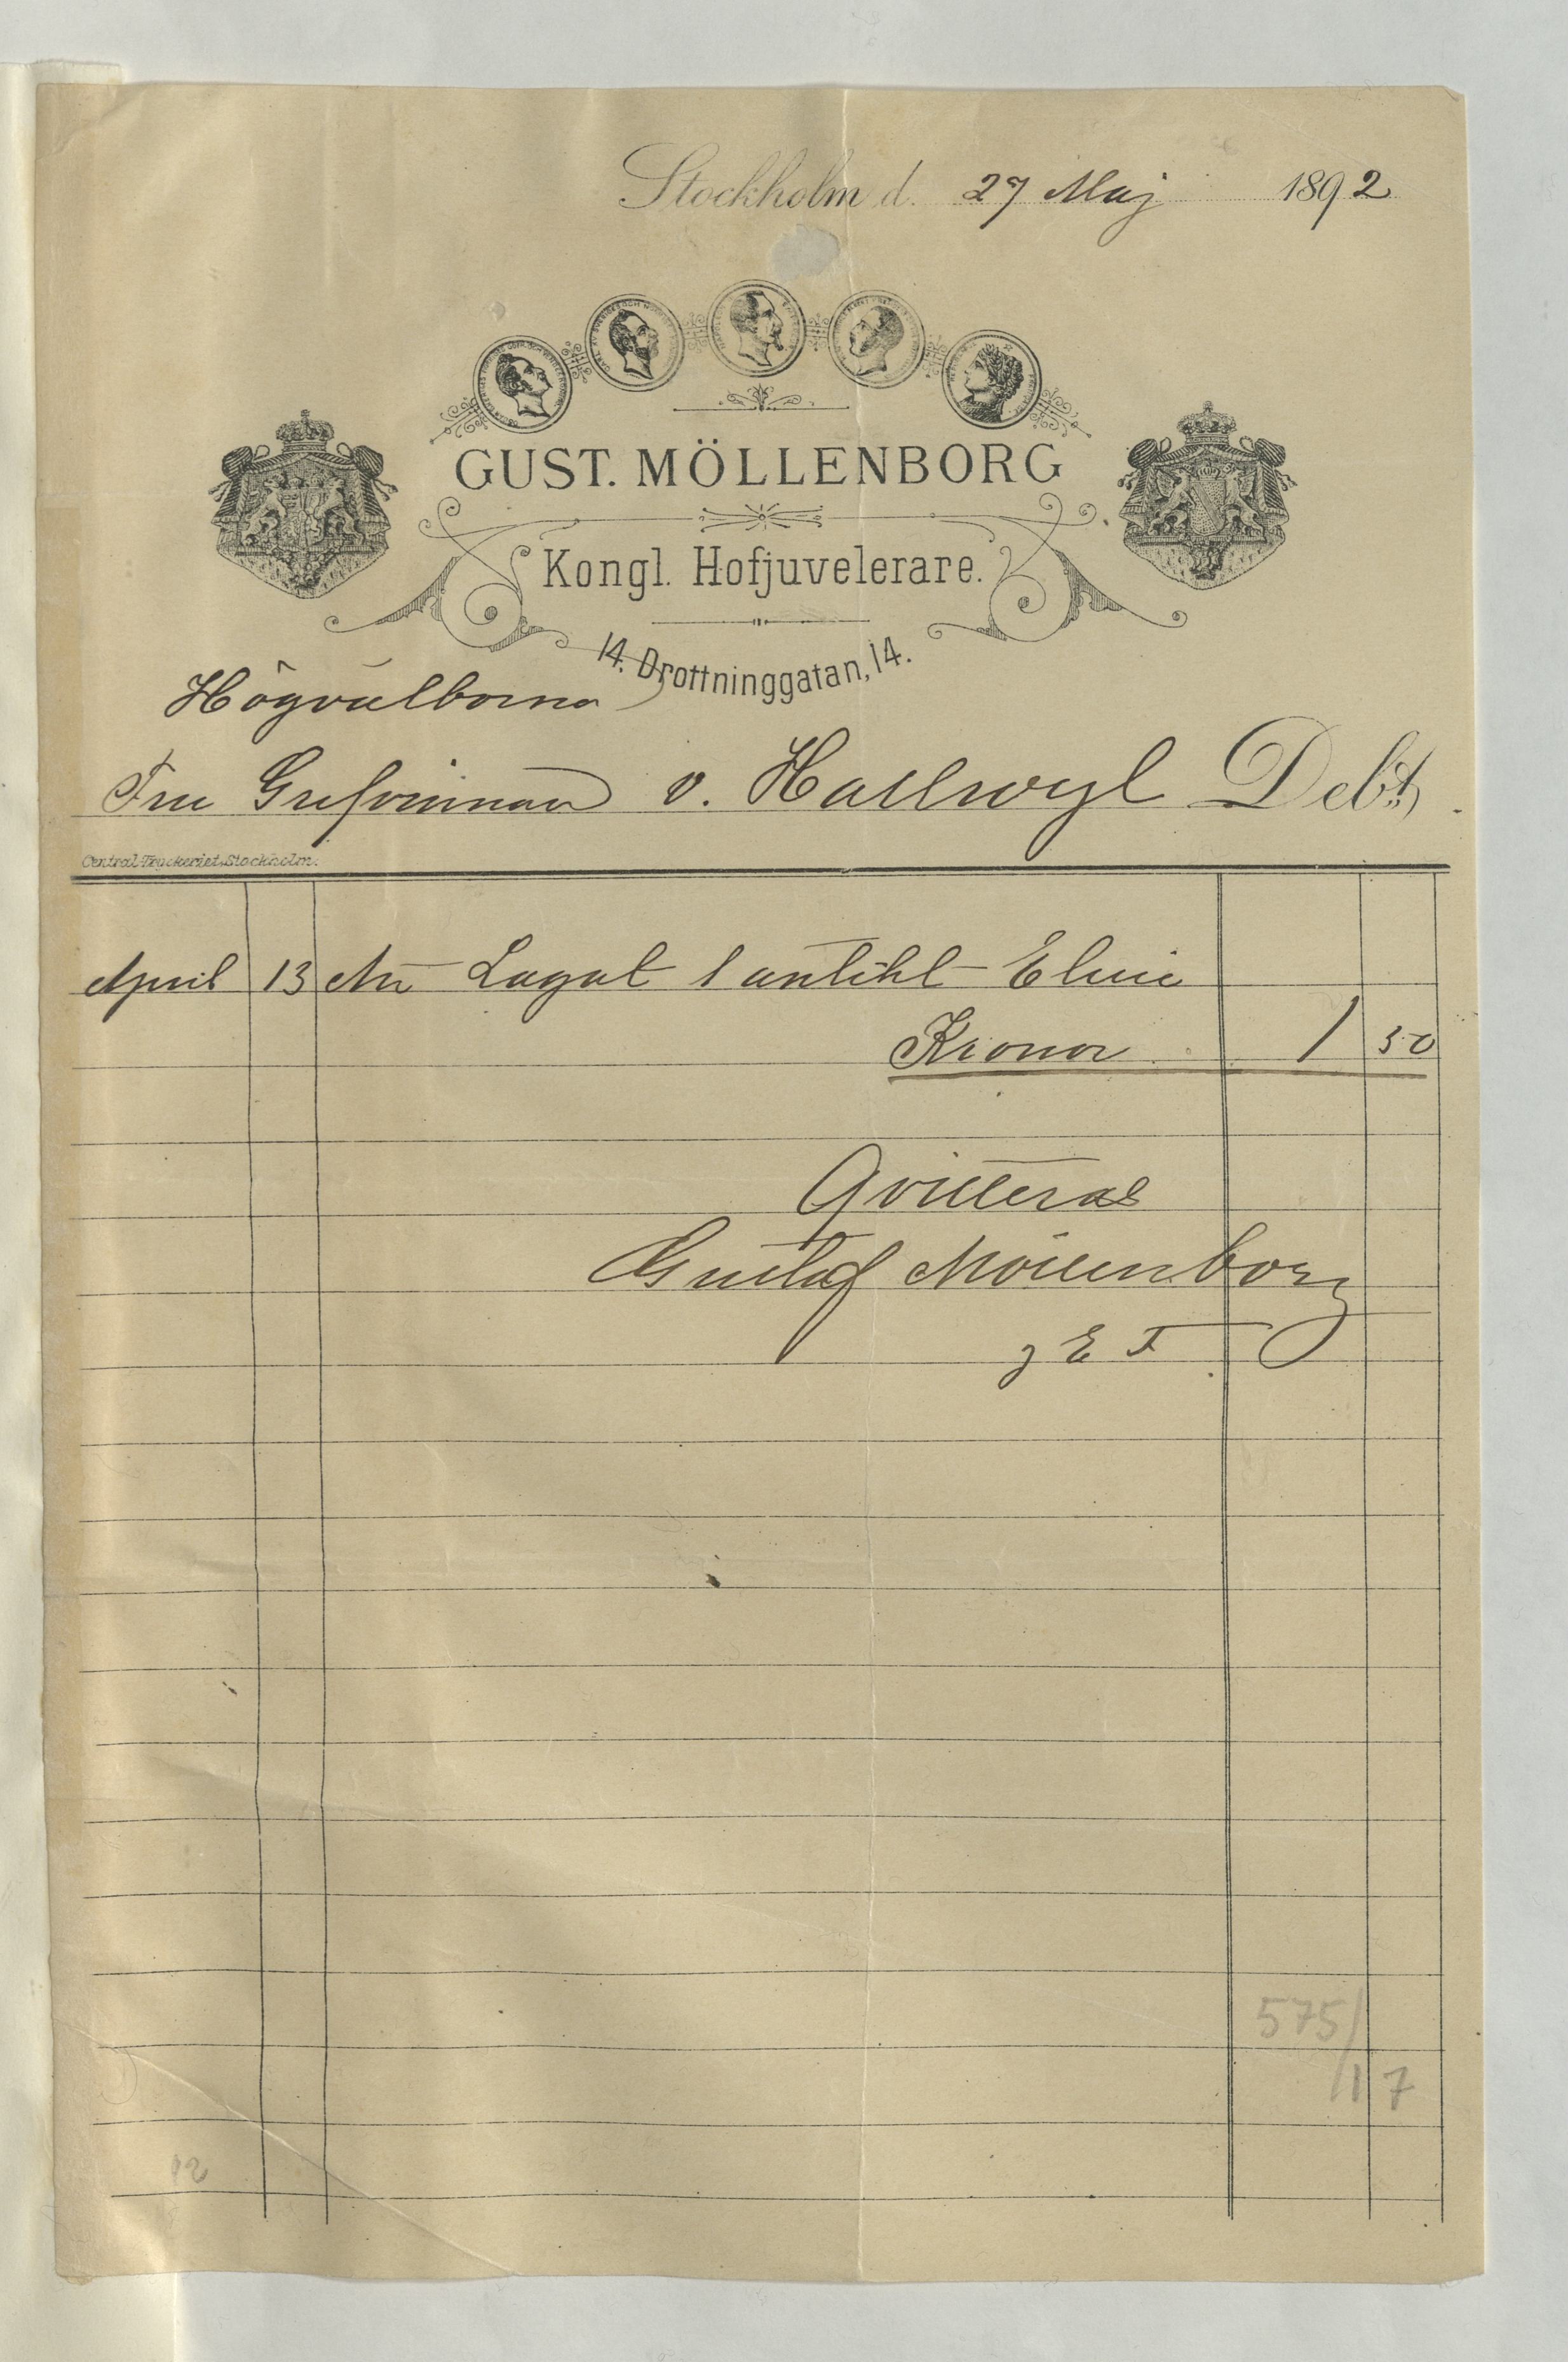 Stockholm d. 27 Maj 1892
GUST. MÖLLENBORG
Kongl. Hofjuvelerare.
14. Drottninggatan, 14.
Högvälborna
Fru Grefvinnan v. Hallwyl Debt.
Central-Tryckeriet, Stockholm.
April 13 An Lagat 1 antikt Etuie
Kronor 1 50
Qvitteras
Gustaf Möllenborg
g E F
575/
17
12